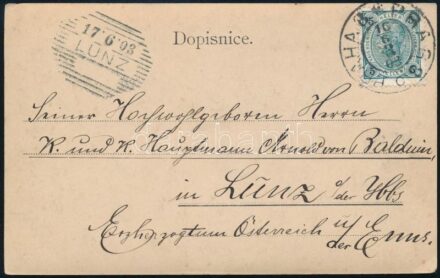 17·6·03
LUNZ
Dopisnice.
Seiner Hochwohlgeboren Herrn
K. und K. Hauptmann Arnold von Balduin,
in Lunz a/der Ybbs
Erzherzogtum Österreich u/
der Enns.